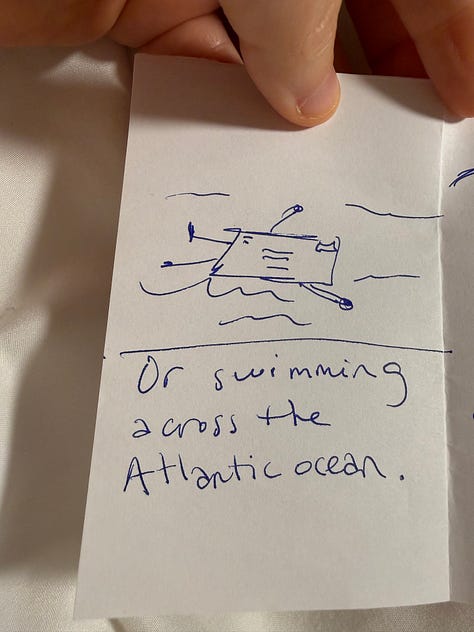 Or swimming
across the
Atlantic ocean.